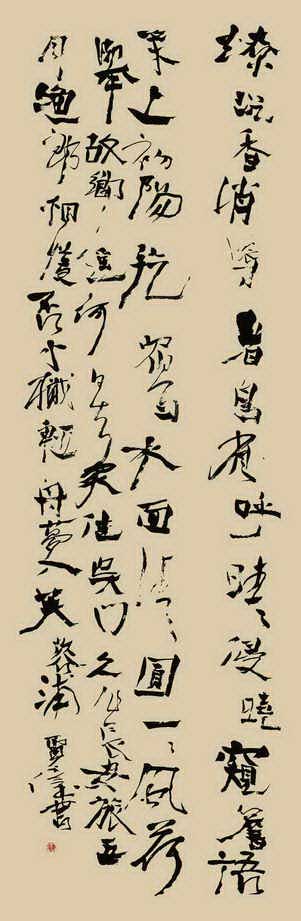 燎沈香消溽暑鳥雀呼晴侵曉窺簷語
葉上初陽乾宿雨水面清圓一一風荷
舉故鄉遙何日去家住吳門久作長安旅五
月漁郎相憶否小檝輕舟夢入芙
蓉浦